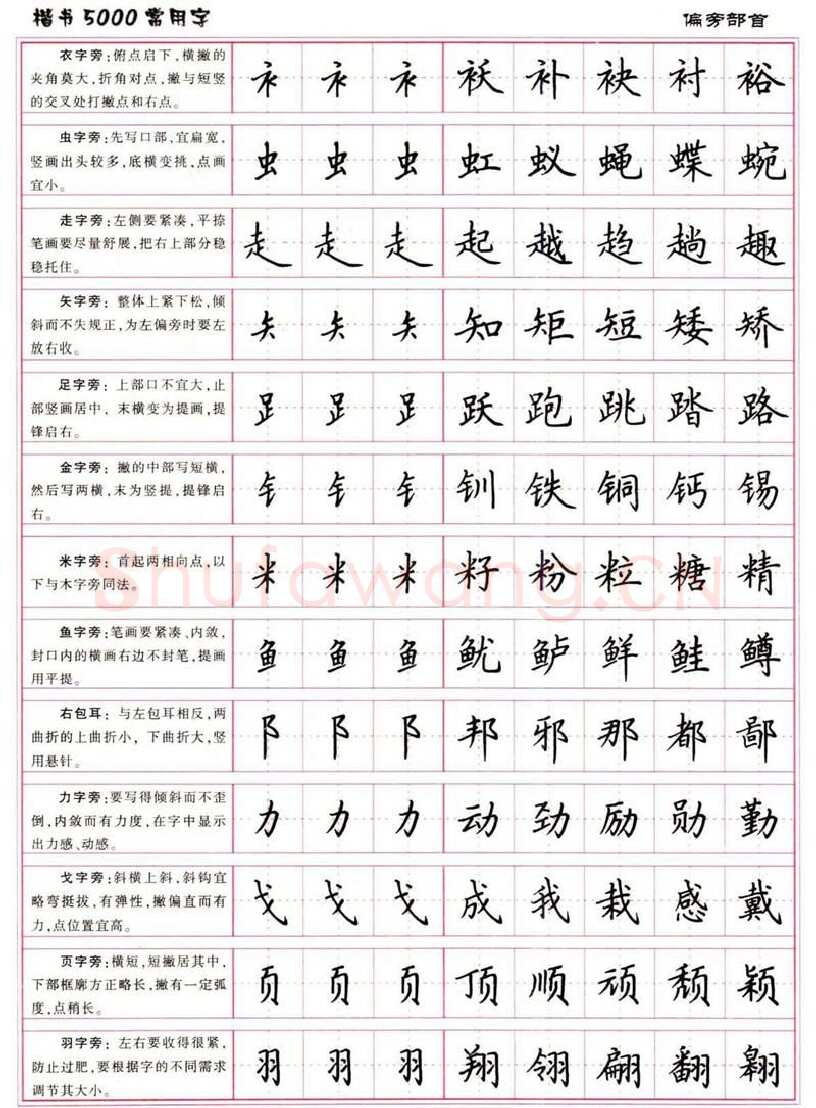 楷书5000常用字
偏旁部首
衣字旁:俯点启下,横撇的
夹角莫大,折角对点,撇与短竖
的交叉处打撇点和右点。
衤 衤 衤 袄 补 袂 衬 裕
虫字旁:先写口部,宜扁宽,
竖画出头较多,底横变挑,点画
宜小。
虫 虫 虫 虹 蚁 蝇 蝶 蜿
走字旁:左侧要紧凑,平捺
笔画要尽量舒展,把右上部分稳
稳托住。
走 走 走 起 越 趋 趟 趣
矢字旁:整体上紧下松,倾
斜而不失规正,为左偏旁时要左
放右收。
矢 矢 矢 知 矩 短 矮 矫
足字旁:上部口不宜大,止
部竖画居中,末横变为提画,提
锋启右。
⻊ ⻊ ⻊ 跃 跑 跳 踏 路
金字旁:撇的中部写短横,
然后写两横,末为竖提,提锋启
右。
钅 钅 钅 钏 铁 铜 钙 锡
米字旁:首起两相向点,以
下与木字旁同法。
米 米 米 籽 粉 粒 糖 精
Shufawang.CN
鱼字旁:笔画要紧凑、内敛,
封口内的横画右边不封笔,提画
用平提。
鱼 鱼 鱼 鱿 鲈 鲜 鲑 鳟
右包耳:与左包耳相反,两
曲折的上曲折小,下曲折大,竖
用悬针。
阝 阝 阝 邦 邪 那 都 鄙
力字旁:要写得倾斜而不歪
倒,内敛而有力度,在字中显示
出力感、动感。
力 力 力 动 劲 励 勋 勤
戈字旁:斜横上斜,斜钩宜
略弯挺拔,有弹性,撇偏直而有
力,点位置宜高。
戈 戈 戈 成 我 栽 感 戴
页字旁:横短,短撇居其中,
下部框廓方正略长,撇有一定弧
度,点稍长。
页 页 页 顶 顺 顽 颓 颖
羽字旁:左右要收得很紧,
防止过肥,要根据字的不同需求
调节其大小。
羽 羽 羽 翔 翎 翩 翻 翱